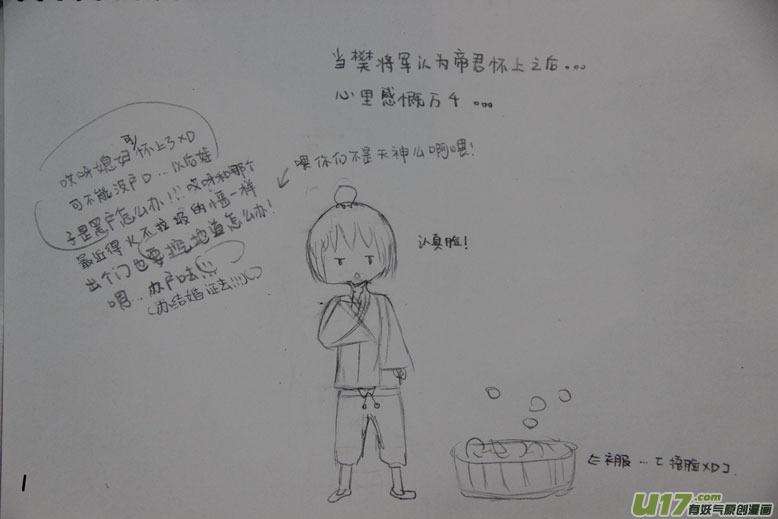 当樊将军认为帝君怀上之后...
心里感慨万千...
哎呀媳妇可怀上了XD
可不能没户口...以后娃
子是黑户怎么办!!! 哎呀和那个
最近得火不垃圾的 一样
出个门也要 地道怎么办!
嗯..办户口去!!!
(办结婚证去!!!)()
喂你们不是天神么啊喂!
认真脸!
←衣服...[捂脸XD]
1
U17.com
有妖气原创漫画